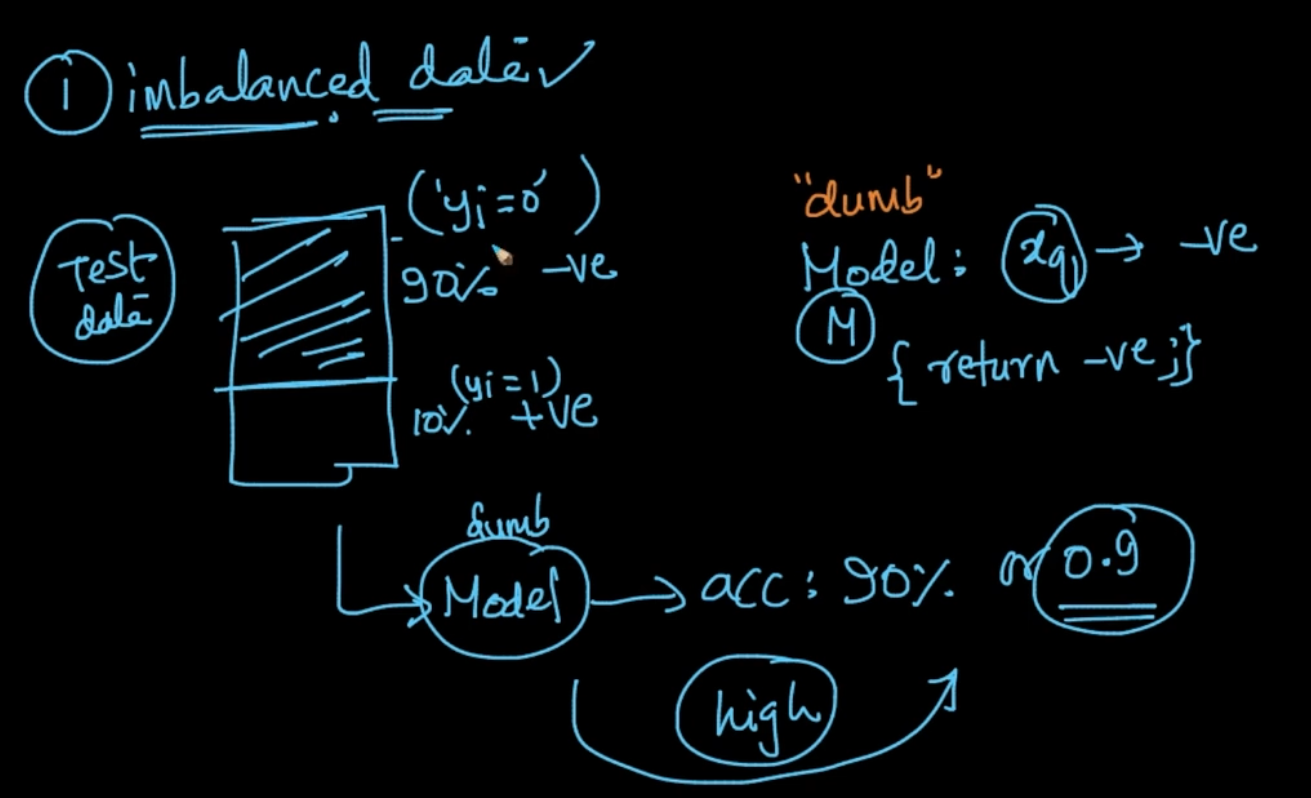 ① imbalanced datā ✓
Test
datā
('yi=0')
90% -ve
(yi=1)
10% +ve
"dumb"
Model: xq → -ve
M
{ return -ve; }
dumb
Model → acc: 90% or 0.9
high